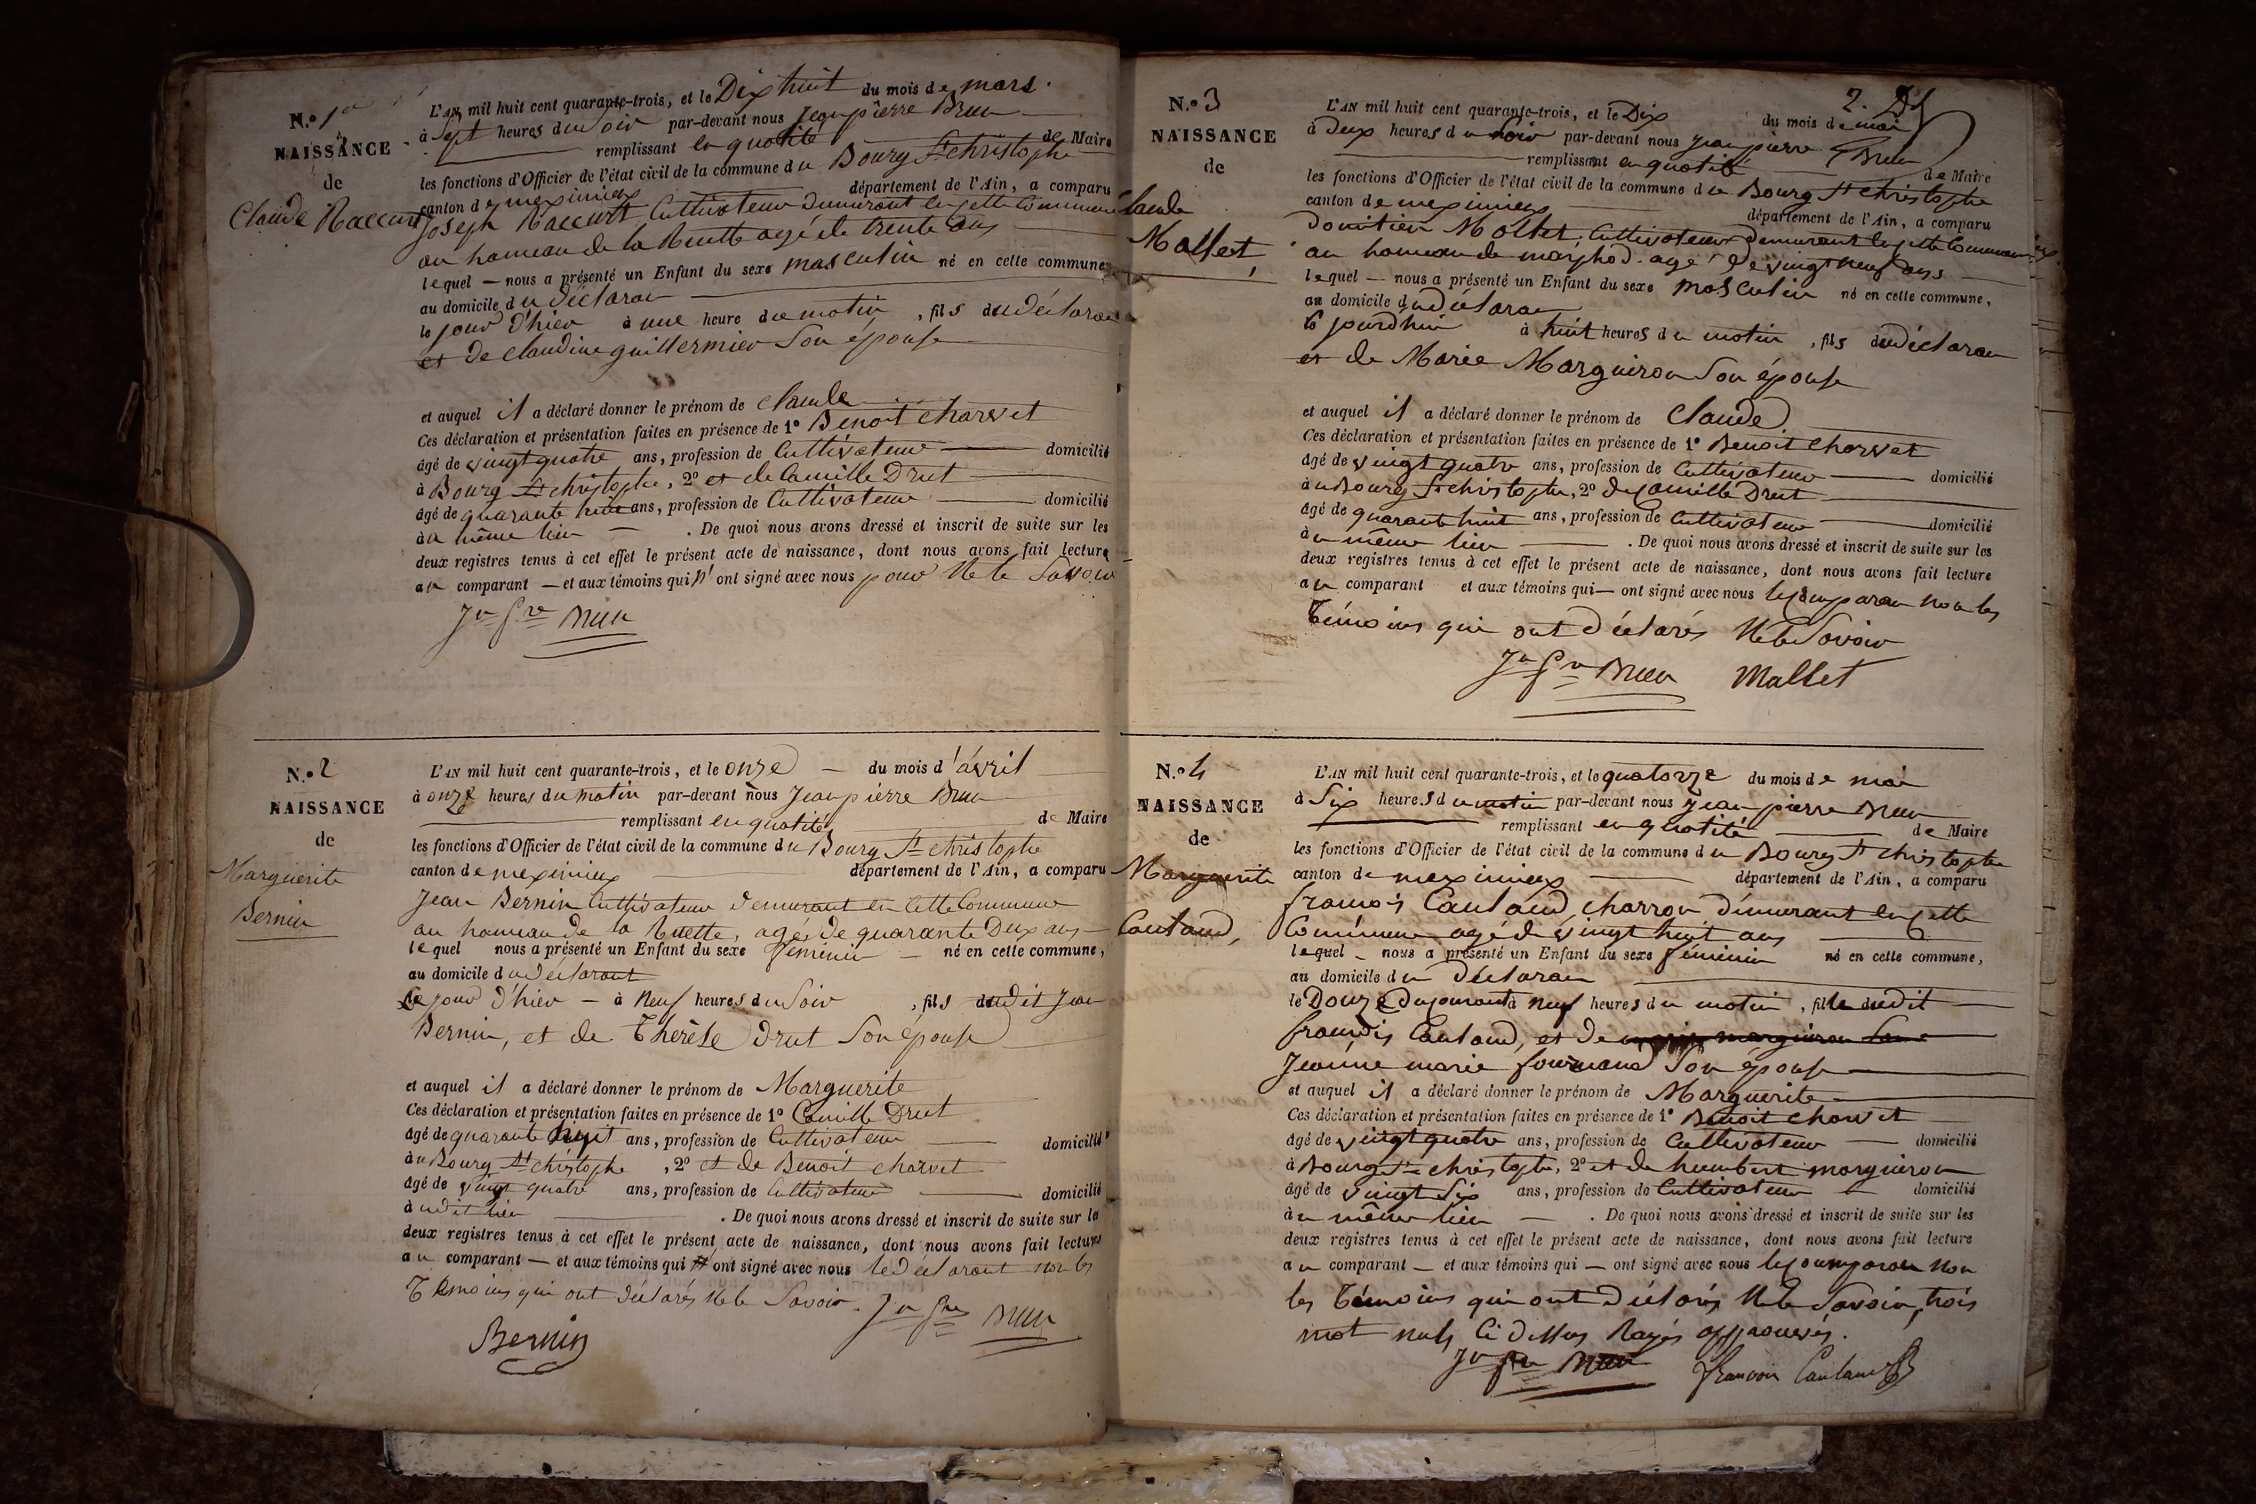 N.o 1er
NAISSANCE
de
Claude Raccurt
L'AN mil huit cent quarante-trois, et le Dix huit du mois de mars.
à Sept heures du Soir par-devant nous Jean pierre Brun
remplissant en qualité de Maire
les fonctions d'Officier de l'état civil de la commune du Bourg St christophe
canton de meximieux département de l'Ain, a comparu
Joseph Raccurt Cultivateur demurant en cette Commune
au hameau de la Ruette agé de trente ans
lequel — nous a présenté un Enfant du sexe masculin né en cette commune
au domicile du déclaran
le jour d'hier à une heure du matin, fils du déclaran
et de claudine guillermier Son épouse
et auquel il a déclaré donner le prénom de claude
Ces déclaration et présentation faites en présence de 1° Benoit charvet
âgé de vingt quatre ans, profession de Cultivateur domicilié
à Bourg St christophe, 2° et de Camille Drut
âgé de quarante huit ans, profession de Cultivateur domicilié
au même lieu. De quoi nous avons dressé et inscrit de suite sur les
deux registres tenus à cet effet le présent acte de naissance, dont nous avons fait lecture
au comparant — et aux témoins qui n'ont signé avec nous pour Ne le Savoir
Jn Pre Brun
N.o 2
NAISSANCE
de
Marguerite
Bernin
L'AN mil huit cent quarante-trois, et le onze du mois d'avril
à onze heures du matin par-devant nous Jean pierre Brun
remplissant en qualité de Maire
les fonctions d'Officier de l'état civil de la commune du Bourg St christophe
canton de meximieux département de l'Ain, a comparu
Jean Bernin Cultivateur demurant en Cette Commune
au hameau de la Ruette, agé de quarante Deux ans
lequel nous a présenté un Enfant du sexe féminin né en cette commune,
au domicile du déclarant
le jour d'hier — à Neuf heures du Soir, fils dudit Jean
Bernin, et de Thérèse Drut Son épouse
et auquel il a déclaré donner le prénom de Marguerite
Ces déclaration et présentation faites en présence de 1° Camille Drut
âgé de quarante huit ans, profession de Cultivateur domicilié
au Bourg St christophe, 2° et de Benoit charvet
âgé de vingt quatre ans, profession de Cultivateur domicilié
à udit lieu. De quoi nous avons dressé et inscrit de suite sur les
deux registres tenus à cet effet le présent acte de naissance, dont nous avons fait lecture
au comparant — et aux témoins qui ont signé avec nous le déclarant non les
Témoins qui ont déclarés Ne le Savoir. Jn Pre Brun
Bernin
2.
N.o 3
NAISSANCE
de
Claude
Mollet
L'AN mil huit cent quarante-trois, et le Dix du mois de mai
à Deux heures du Soir par-devant nous Jean pierre Brun
remplissant en qualité de Maire
les fonctions d'Officier de l'état civil de la commune du Bourg St christophe
canton de meximieux département de l'Ain, a comparu
Domitien Mollet, Cultivateur demurant en cette Commune
au hameau de marfhod. agé de vingt neuf ans
lequel — nous a présenté un Enfant du sexe masculin né en cette commune,
au domicile du déclaran
le jourd'hui à huit heures du matin, fils du déclaran
et de Marie Marguiron Son épouse
et auquel il a déclaré donner le prénom de Claude
Ces déclaration et présentation faites en présence de 1° Benoit Charvet
âgé de vingt quatre ans, profession de Cultivateur domicilié
à uBourg St christophe, 2° de Camille Drut
âgé de quarante huit ans, profession de Cultivateur domicilié
à u même lieu. De quoi nous avons dressé et inscrit de suite sur les
deux registres tenus à cet effet le présent acte de naissance, dont nous avons fait lecture
au comparant et aux témoins qui — ont signé avec nous le comparan non les
Témoins qui ont Déclarés Ne le Savoir
Jn Pre Brun Mallet
N.o 4
NAISSANCE
de
Marguerite
Cautand,
L'AN mil huit cent quarante-trois, et le quatorze du mois de mai
à Six heures du matin par-devant nous Jean pierre Brun
remplissant en qualité de Maire
les fonctions d'Officier de l'état civil de la commune du Bourg St christophe
canton de meximieux département de l'Ain, a comparu
françois Cautand charron demurant en cette
Commune agé de vingt huit ans
lequel — nous a présenté un Enfant du sexe féminin né en cette commune,
au domicile du déclaran
le Douze du courant à neuf heures du matin, fille dudit
françois Cautand, et de marie marguiron Son
Jeanne marie fournand Son épouse
et auquel il a déclaré donner le prénom de Marguerite
Ces déclaration et présentation faites en présence de 1° Benoit charvet
âgé de vingt quatre ans, profession de Cultivateur domicilié
à Bourg St christophe, 2° et de humbert marguiron
âgé de vingt Six ans, profession de Cultivateur domicilié
à u même lieu. De quoi nous avons dressé et inscrit de suite sur les
deux registres tenus à cet effet le présent acte de naissance, dont nous avons fait lecture
au comparant — et aux témoins qui — ont signé avec nous le comparan non
les Témoins qui ont Déclarés Ne le Savoir, trois
mot nuls Ci dessus Rayés approuvés.
Jn Pre Brun françois Cautand